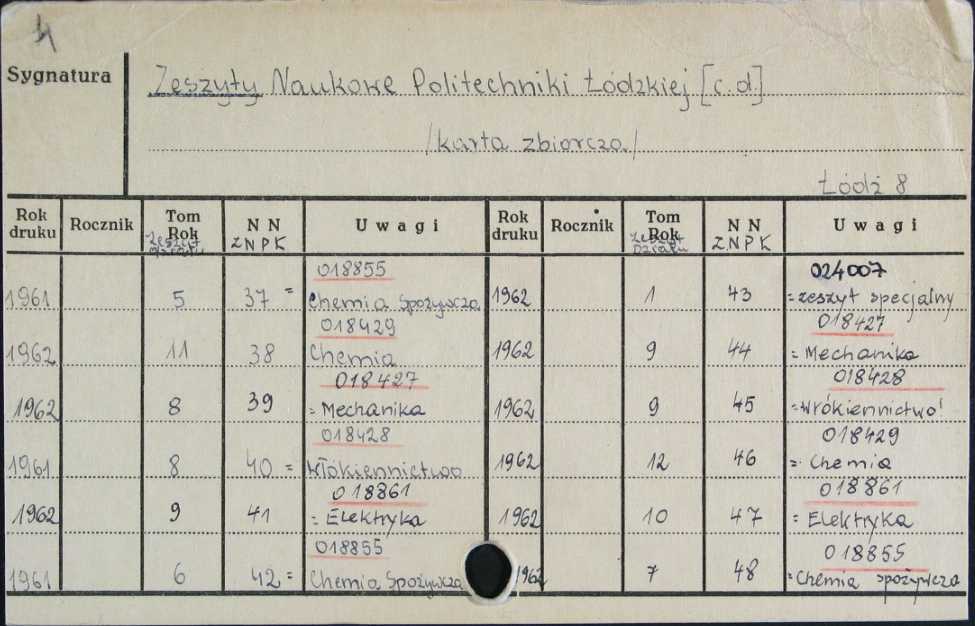 Sygnatura
Zeszyty Naukowe Politechniki Łódzkiej [c.d.]
/karta zbiorcza/
Łódź 8
Rok druku Rocznik Tom Rok zeszyt działu NN ZNPK Uwagi Rok druku Rocznik Tom Rok zeszyt działu NN ZNPK Uwagi
018855 024007
1961 5 37 = Chemia Spożywcza 1962 1 43 = zeszyt specjalny
018429 018427
1962 11 38 Chemia 1962 9 44 = Mechanika
018427 018428
1962 8 39 = Mechanika 1962 9 45 = Włókiennictwo
018428 018429
1961 8 40 = Włókiennictwo 1962 12 46 = Chemia
018861 018861
1962 9 41 = Elektryka 1962 10 47 = Elektryka
018855 018855
1961 6 42 = Chemia Spożywcza 1962 7 48 = Chemia spożywcza